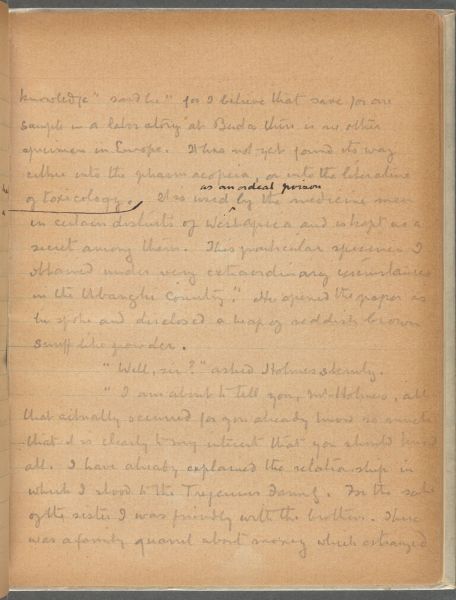 knowledge" said he "for I believe that save for one
sample in a laboratory at Buda there is no other
specimen in Europe. It has not yet found its way
either into the pharmacopeia or into the literature
as an ordeal poison
of toxicology. It is used by the medicine men
in certain districts of West Africa and is kept as a
secret among them. This particular specimen I
obtained under very extraordinary circumstances
in the Ubanghi Country." He opened the paper as
he spoke and disclosed a heap of reddish brown
snuff like powder.
"Well, sir?" asked Holmes sternly.
"I am about to tell you, Mr Holmes, all
that actually occurred for you already know so much
that it is clearly to my interest that you should know
all. I have already explained the relationship in
which I stood to the Tregennis Family. For the sake
of the sister I was friendly with the brothers. There
was a family quarrel about money which estranged